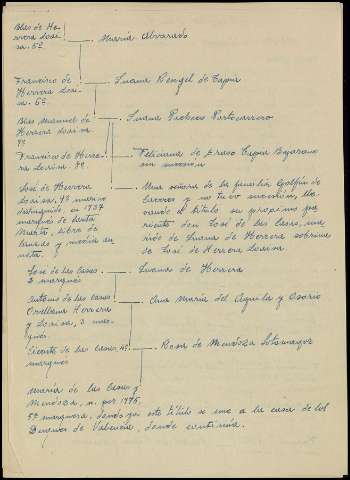 Blas de He-
rrera Loai-
sa. 5º
María Alvarado
Francisco de
Herrera Loai-
sa. 6º
Juana Rengel de Tapia
Blas Manuel de
Herrera Loaisa
7º
Juana Pacheco Portocarrero
Francisco de Herre-
ra Loaisa. 8º
Feliciana de Eraso Tapia Bejarano
sin sucesión
José de Herrera
Loaisa, 9º
en 1737
marqués de Santa
Marta,
Una señora de la familia Golfín de
Cáceres y no tuvo sucesión,
el título
don José de las Casas, ma-
rido de Juana de Herrera sobrina
de José de Herrera Loaisa
José de las Casas
2 marqués
Juana de Herrera
Antonio de las Casas
Orellana Herrera
y Loaisa, 3 mar-
qués.
Ana María del Aguila y Osorio
Vicente de las Casas, 4º
marqués
Rosa de Mendoza Sotomayor
María de las Casas y
Mendoza, n. por 1775.
5ª marquesa, donde que este título se une a la casa de los
Duques de Valencia, donde continúa.